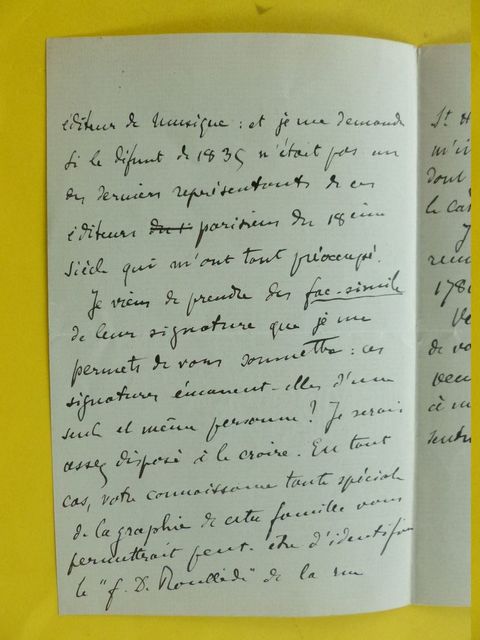 éditeur de musique : et je me demande
si le défunt de 1835 n'était pas un
des derniers représentants de ces
éditeurs parisiens du 18ème
siècle qui m'ont tant préoccupé.
Je viens de prendre des fac-simile
de leur signature que je me
permets de vous soumettre : ces
signatures émanent-elles d'une
seule et même personne ? Je serais
assez disposé à le croire. En tout
cas, votre connaissance toute spéciale
de la graphie de cette famille vous
permettrait peut-être d'identifier
le "f. D. " de la rue
St
m'
dont
le
J
178
de
à